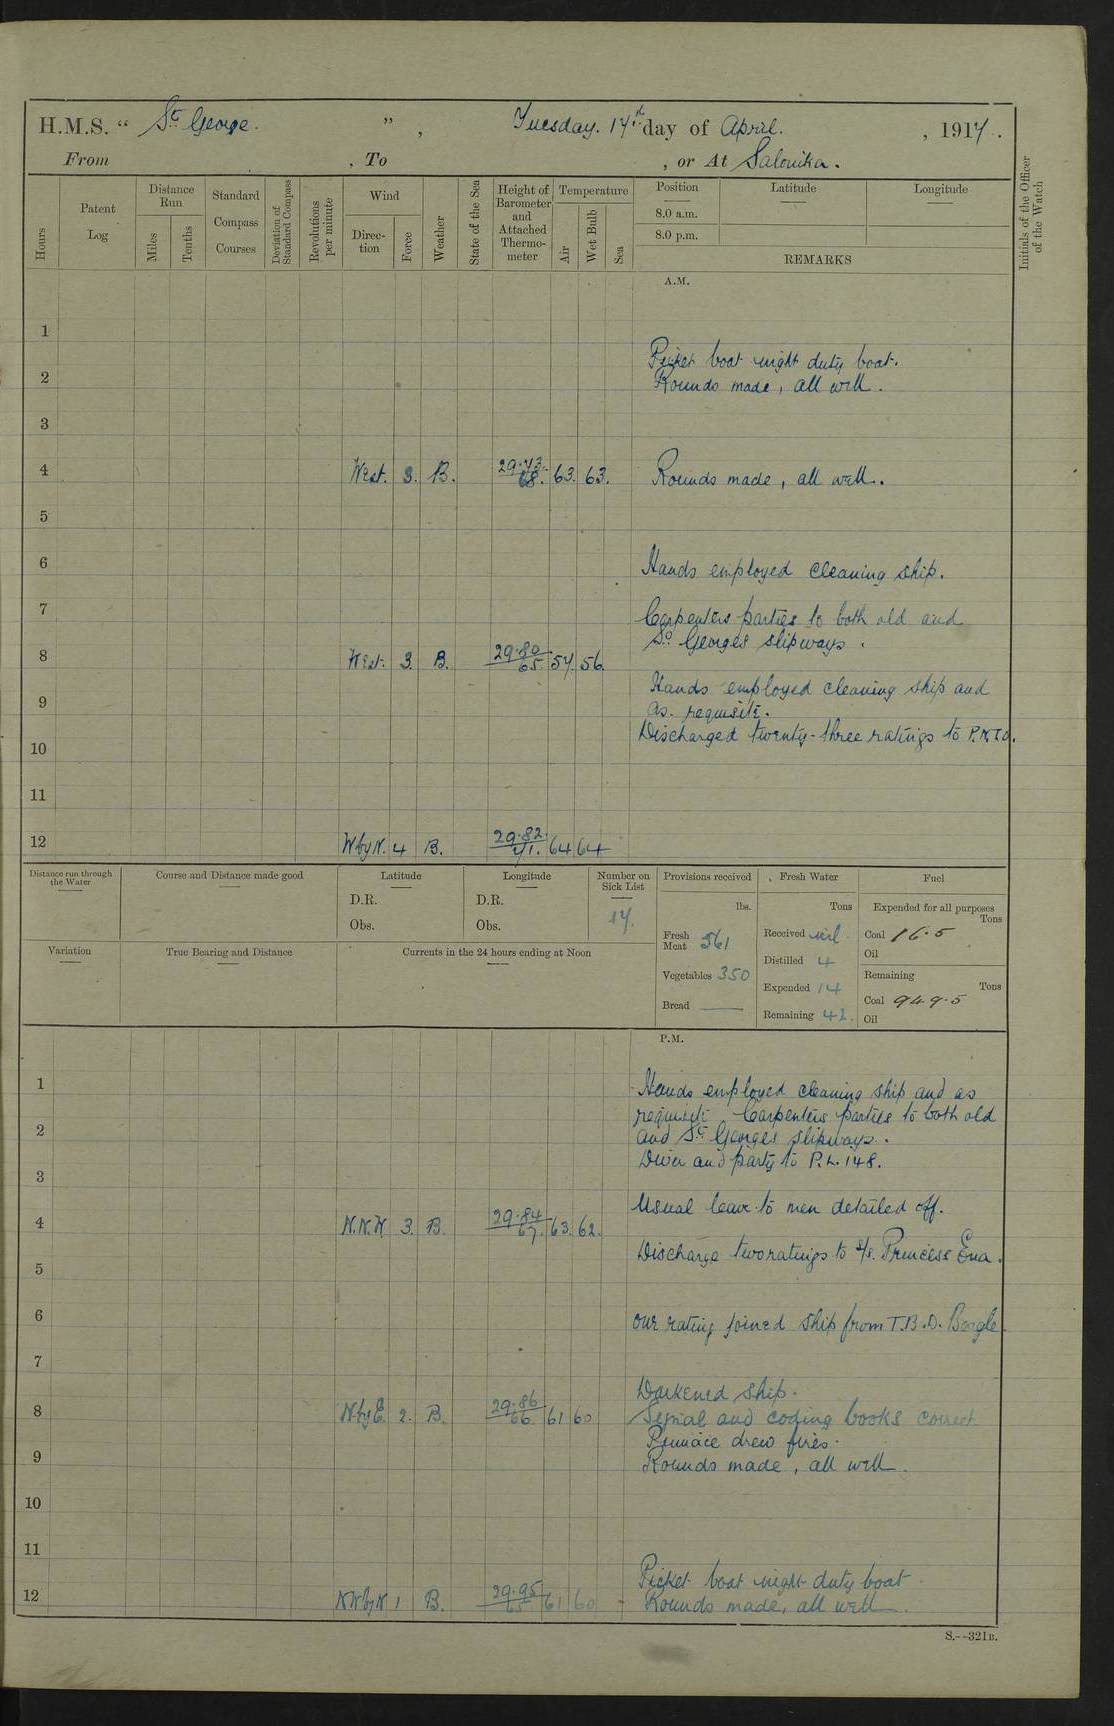 H.M.S. “ St George. ” , Tuesday. 17th day of April. , 1917.
From , To , or At Salonika.
Hours
Patent Log
Distance Run
Miles
Tenths
Standard Compass Courses
Deviation of Standard Compass
Revolutions per minute
Wind
Direction
Force
Weather
State of the Sea
Height of Barometer and Attached Thermometer
Temperature
Air
Wet Bulb
Sea
Position
8.0 a.m.
8.0 p.m.
Latitude
Longitude
REMARKS
Initials of the Officer of the Watch
A.M.
1
Picket boat night duty boat.
2
Rounds made, all well.
3
4 West. 3. B. 29.73. 68. 63. 63. Rounds made, all well.
5
6 Hands employed cleaning ship.
7 Carpenters parties to both old and
St Georges slipways.
8 West. 3. B. 29.80 65. 57. 56.
Hands employed cleaning ship and
9 as requisite.
Discharged twenty-three ratings to P.N.T.O.
10
11
12 W by N. 4 B. 29.82. 71. 64 64
Distance run through the Water
Course and Distance made good
Latitude
D.R.
Obs.
Longitude
D.R.
Obs.
Number on Sick List
17.
Provisions received
lbs.
Fresh Meat 561
Vegetables 350
Bread
Fresh Water
Tons
Received nil
Distilled 4
Expended 14
Remaining 42.
Fuel
Expended for all purposes
Tons
Coal 16.5
Oil
Remaining
Tons
Coal 949.5
Oil
Variation
True Bearing and Distance
Currents in the 24 hours ending at Noon
P.M.
1 Hands employed cleaning ship and as
requisite. Carpenters parties to both old
2 and St Georges slipways.
Diver and party to P.L.148.
3
Usual leave to men detailed off.
4 N.N.W. 3. B. 29.84 67. 63. 62.
Discharge two ratings to S/S. Princess Ena.
5
6 one rating joined ship from T.B.D. Beagle.
7
Darkened ship.
8 N. by E. 2. B. 29.86 66. 61 60 Signal and coding books correct
Pinnace drew fires.
9 Rounds made, all well.
10
11
Picket boat night duty boat
12 NW by N 1 B. 29.95 65. 61 60 - Rounds made, all well.
S.--321B.